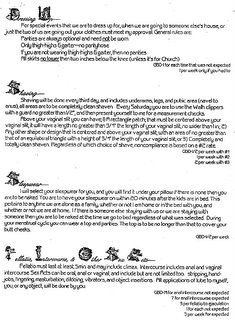 Dressing Up
For special events that we are to dress up for, when we are going to someone else's house, or
just the two of us are going out your clothes must meet my approval. General rules are:
Panties are always optional and need not be worn
Only thigh-highs & garter - no pantyhose
If you are not wearing thigh-highs & garter, then no panties
All skirts no lower than two inches below the knee (unless it's for Church)
Shaving
Shaving will be done every third day, and includes underarms, legs, and pubic area (navel to
anus), all areas are to be completely clean shaven. Every Saturday you are to use the Wahl clippers
with a guard no greater than 1/2", and then present yourself to me for a measurement checks.
Above your vaginal slit you can have: 1) Rectangle patch, that must be centered above your
vaginal slit, it will have a length no greater than 3/4" the length of your vaginal slit, no wider than 1 in; 2)
Any other shape or design that is centered and above your vaginal slit, with an area of no greater than
that of an equilateral triangle with a height of 3/4" the length of your vaginal slit, or 3) Completely and
totally clean shaven. Regardless of which choice of shave, noncompliance is based on a #2 rate.
GBD 1/2 per week with #1
GBD 1 per week with #2
GBD 2 per week with #3
Sleepwear
I will select your sleepwear for you, and you will find it under your pillow if there is none then you
are to be naked. You are to have your sleepwear on within 20 minutes after the kids are in bed. This
pertains to anytime we are alone as a family, whether or not I am home or in the bed with you, and
whether or not we are at home. If there is someone else staying with us or we are staying with
someone then you are to be naked at the time we go to bed regardless of what was selected. During
your menstrual cycle you can wear a top and panties. The top is to be no longer than that to cover your
butt cheeks.
GBD 1/2 per week
Fellatio, Intercourse, & Other Sex Acts
Fellatio must last at least 5 min and may include climax. Intercourse includes anal and vaginal
intercourse. Sex Acts can be oral, anal or vaginal and include but are not limited too: stripping, hand
jobs, fingering, masturbation, dildoing, vibrators, and object insertions. All applications of lube by myself,
you, or any object, will be done by you